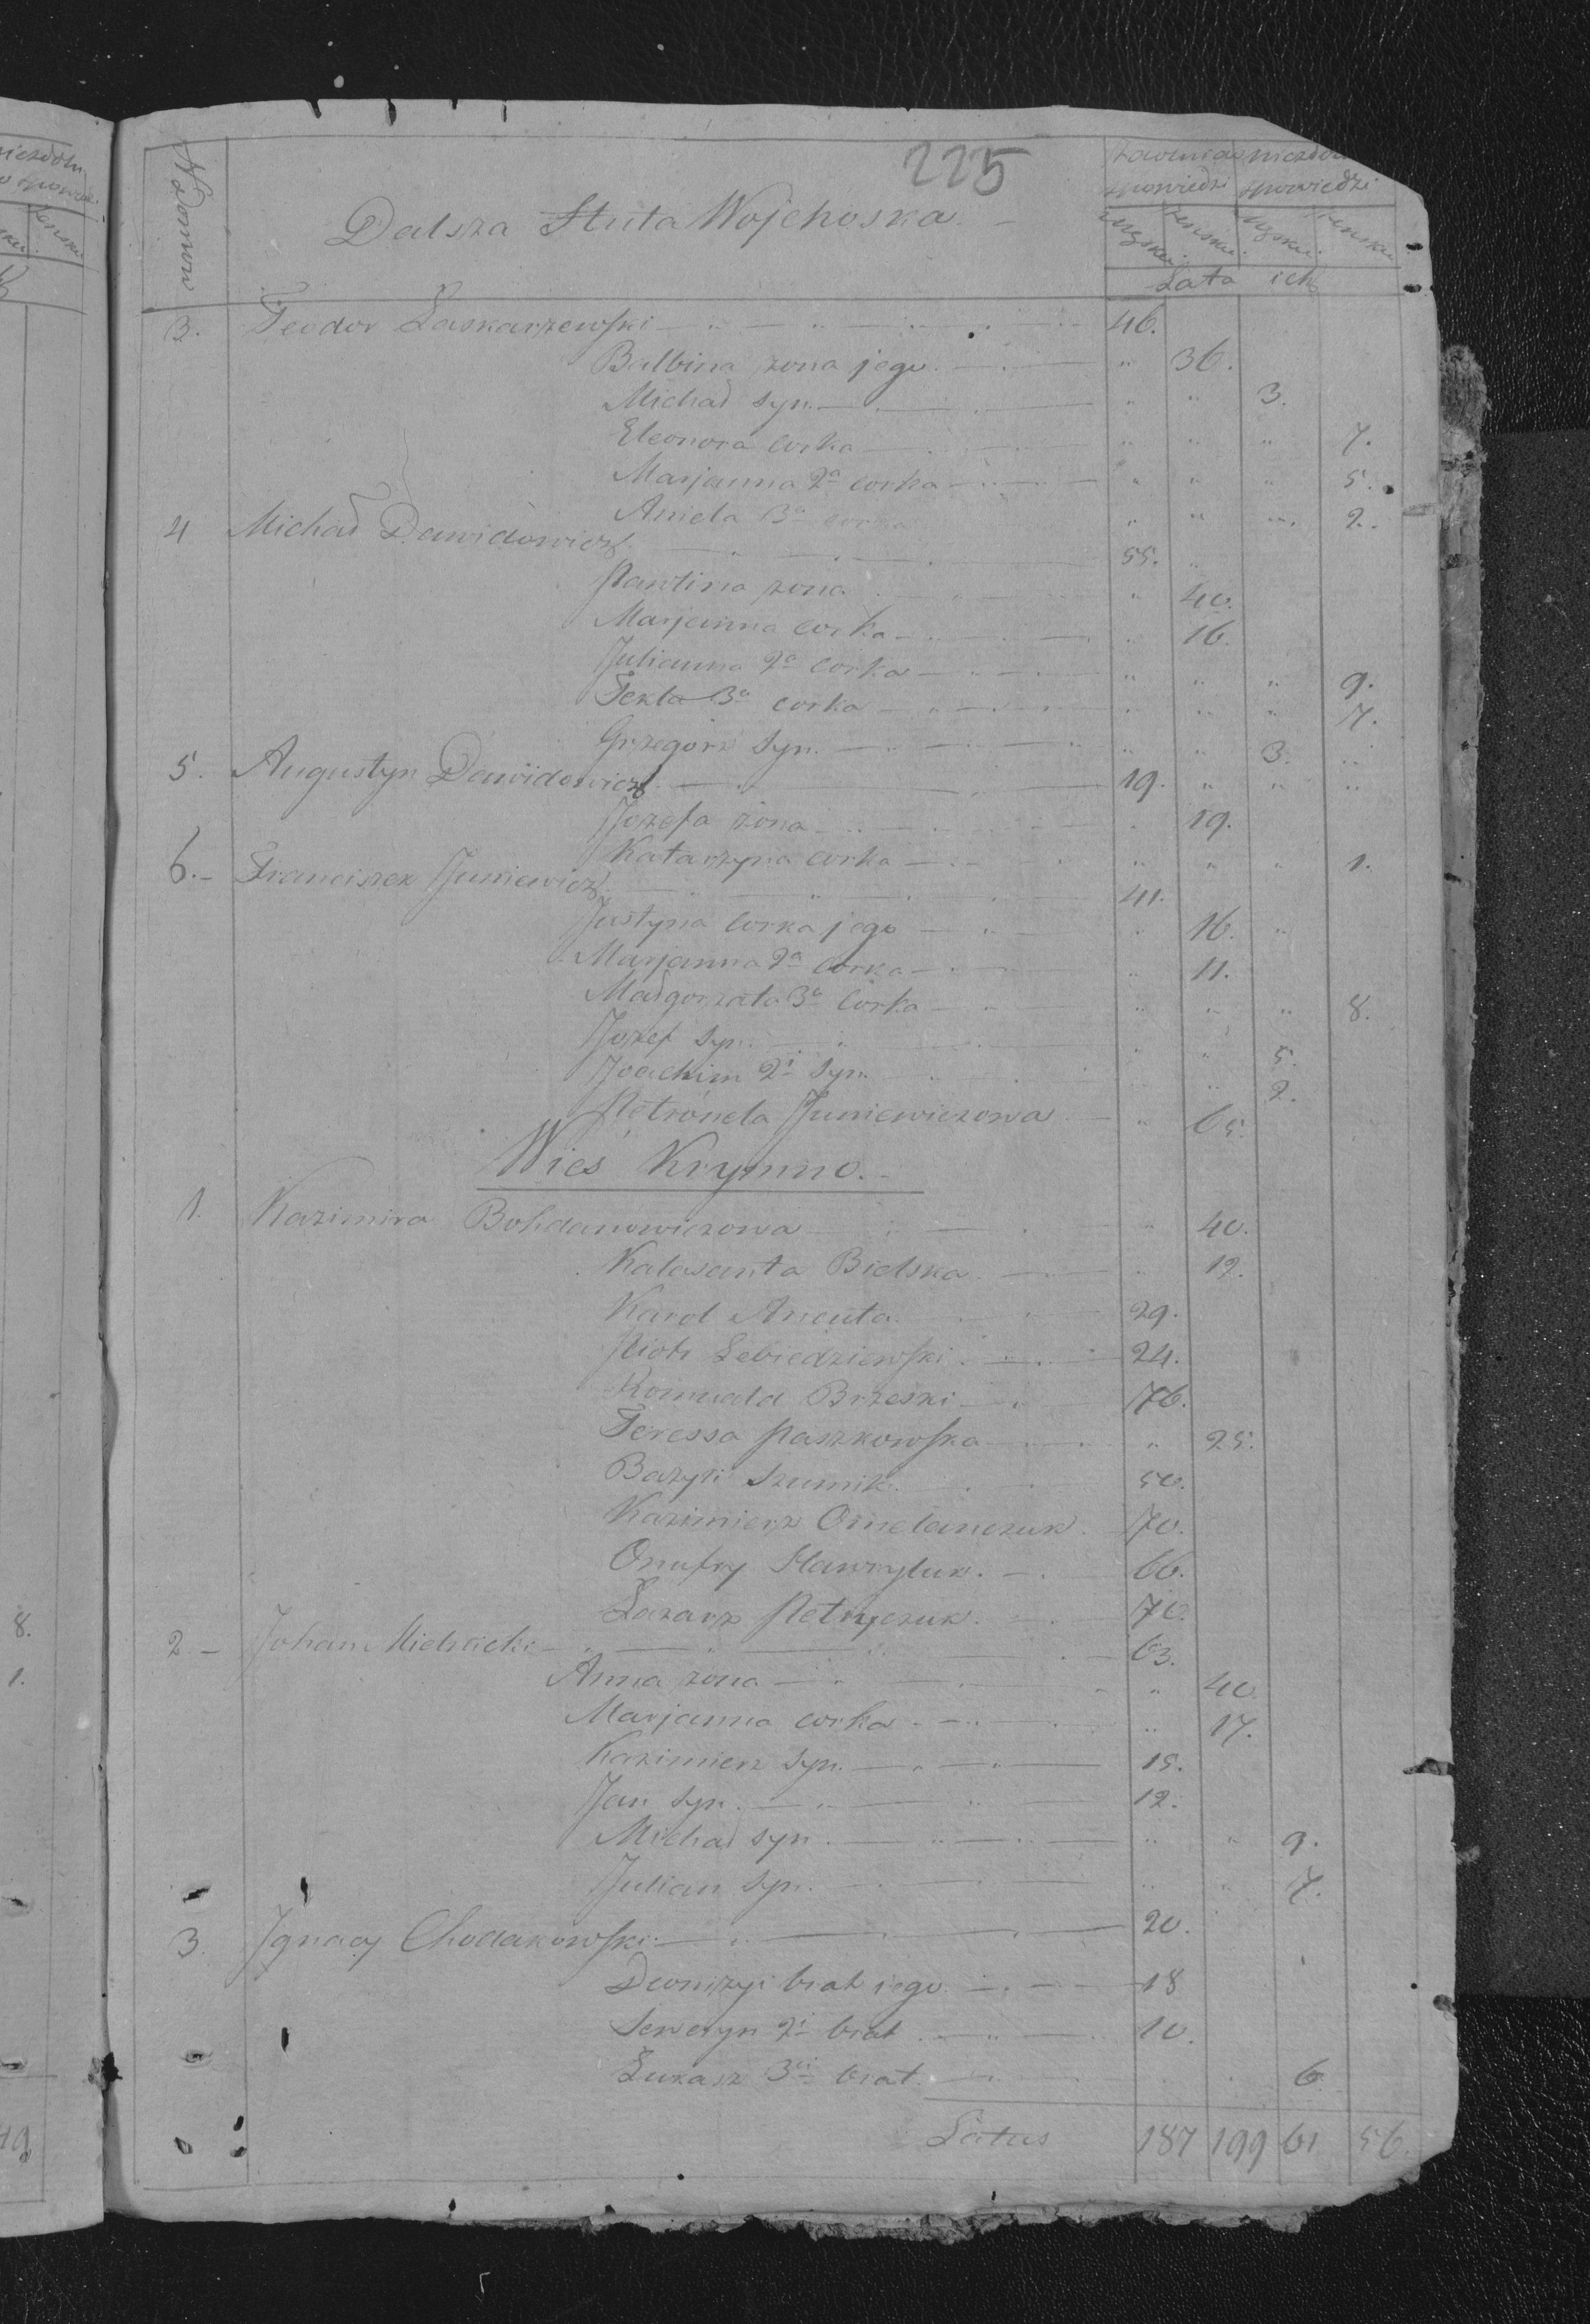 225
N Domu
Dalsza Huta Wojehoska.
spowiedzi spowiedzi
męzka żenska męzka żenska
Lata ich
3. Teodor Laskarzewski 46.
Balbina żona jego " 36.
Michał syn " " 3.
Eleonora corka " " " 7.
Marjanna 2a corka " " " 5.
Aniela 3a corka " " " 2.
4 Michał Dawidowicz 55. "
Pawlina żona " 40.
Marjanna corka " 16.
Julianna 2a corka " " " 9.
Tekla 3a corka " " " 7.
Grzegorz syn " " 3. "
5. Augustyn Dawidowicz 19. " " "
Jozefa żona " 19.
Katarzyna corka " " " 1.
6.- Franciszek Juniewicz 41.
Justyna corka jego " 16. "
Marjanna 2a corka " 11.
Małgorzata 3a corka " " " 8.
Jozef syn " " 5.
Joachim 2i syn " " 2.
Petronela Juniewiczowa " 65.
Wieś Krymno.
1. Kazimira Bohdanowiczowa " 40.
Kalasanta Bielska " 12.
Karol Ancuta 29.
Piotr Lebiedziewski 24.
Romuald Brzeski 76.
Teressa Paszkowska " 25.
Bazyli Szumik 50.
Kazimierz Omelanczuk 70.
Onufry Hawryluk 66.
Łazarz Petryczuk 70.
2.- Johan 63.
Anna żona " 40
Marjanna corka " 17.
Kazimierz syn 15.
Jan syn 12.
Michał syn " " 9.
Julian syn " " 7.
3. Ignacy Chodakowski 20.
Dyonizyi brat jego 18
Seweryn 2i brat 10.
Łukasz 3ci brat 6
Latus 187 199 61 56.
8.
1.